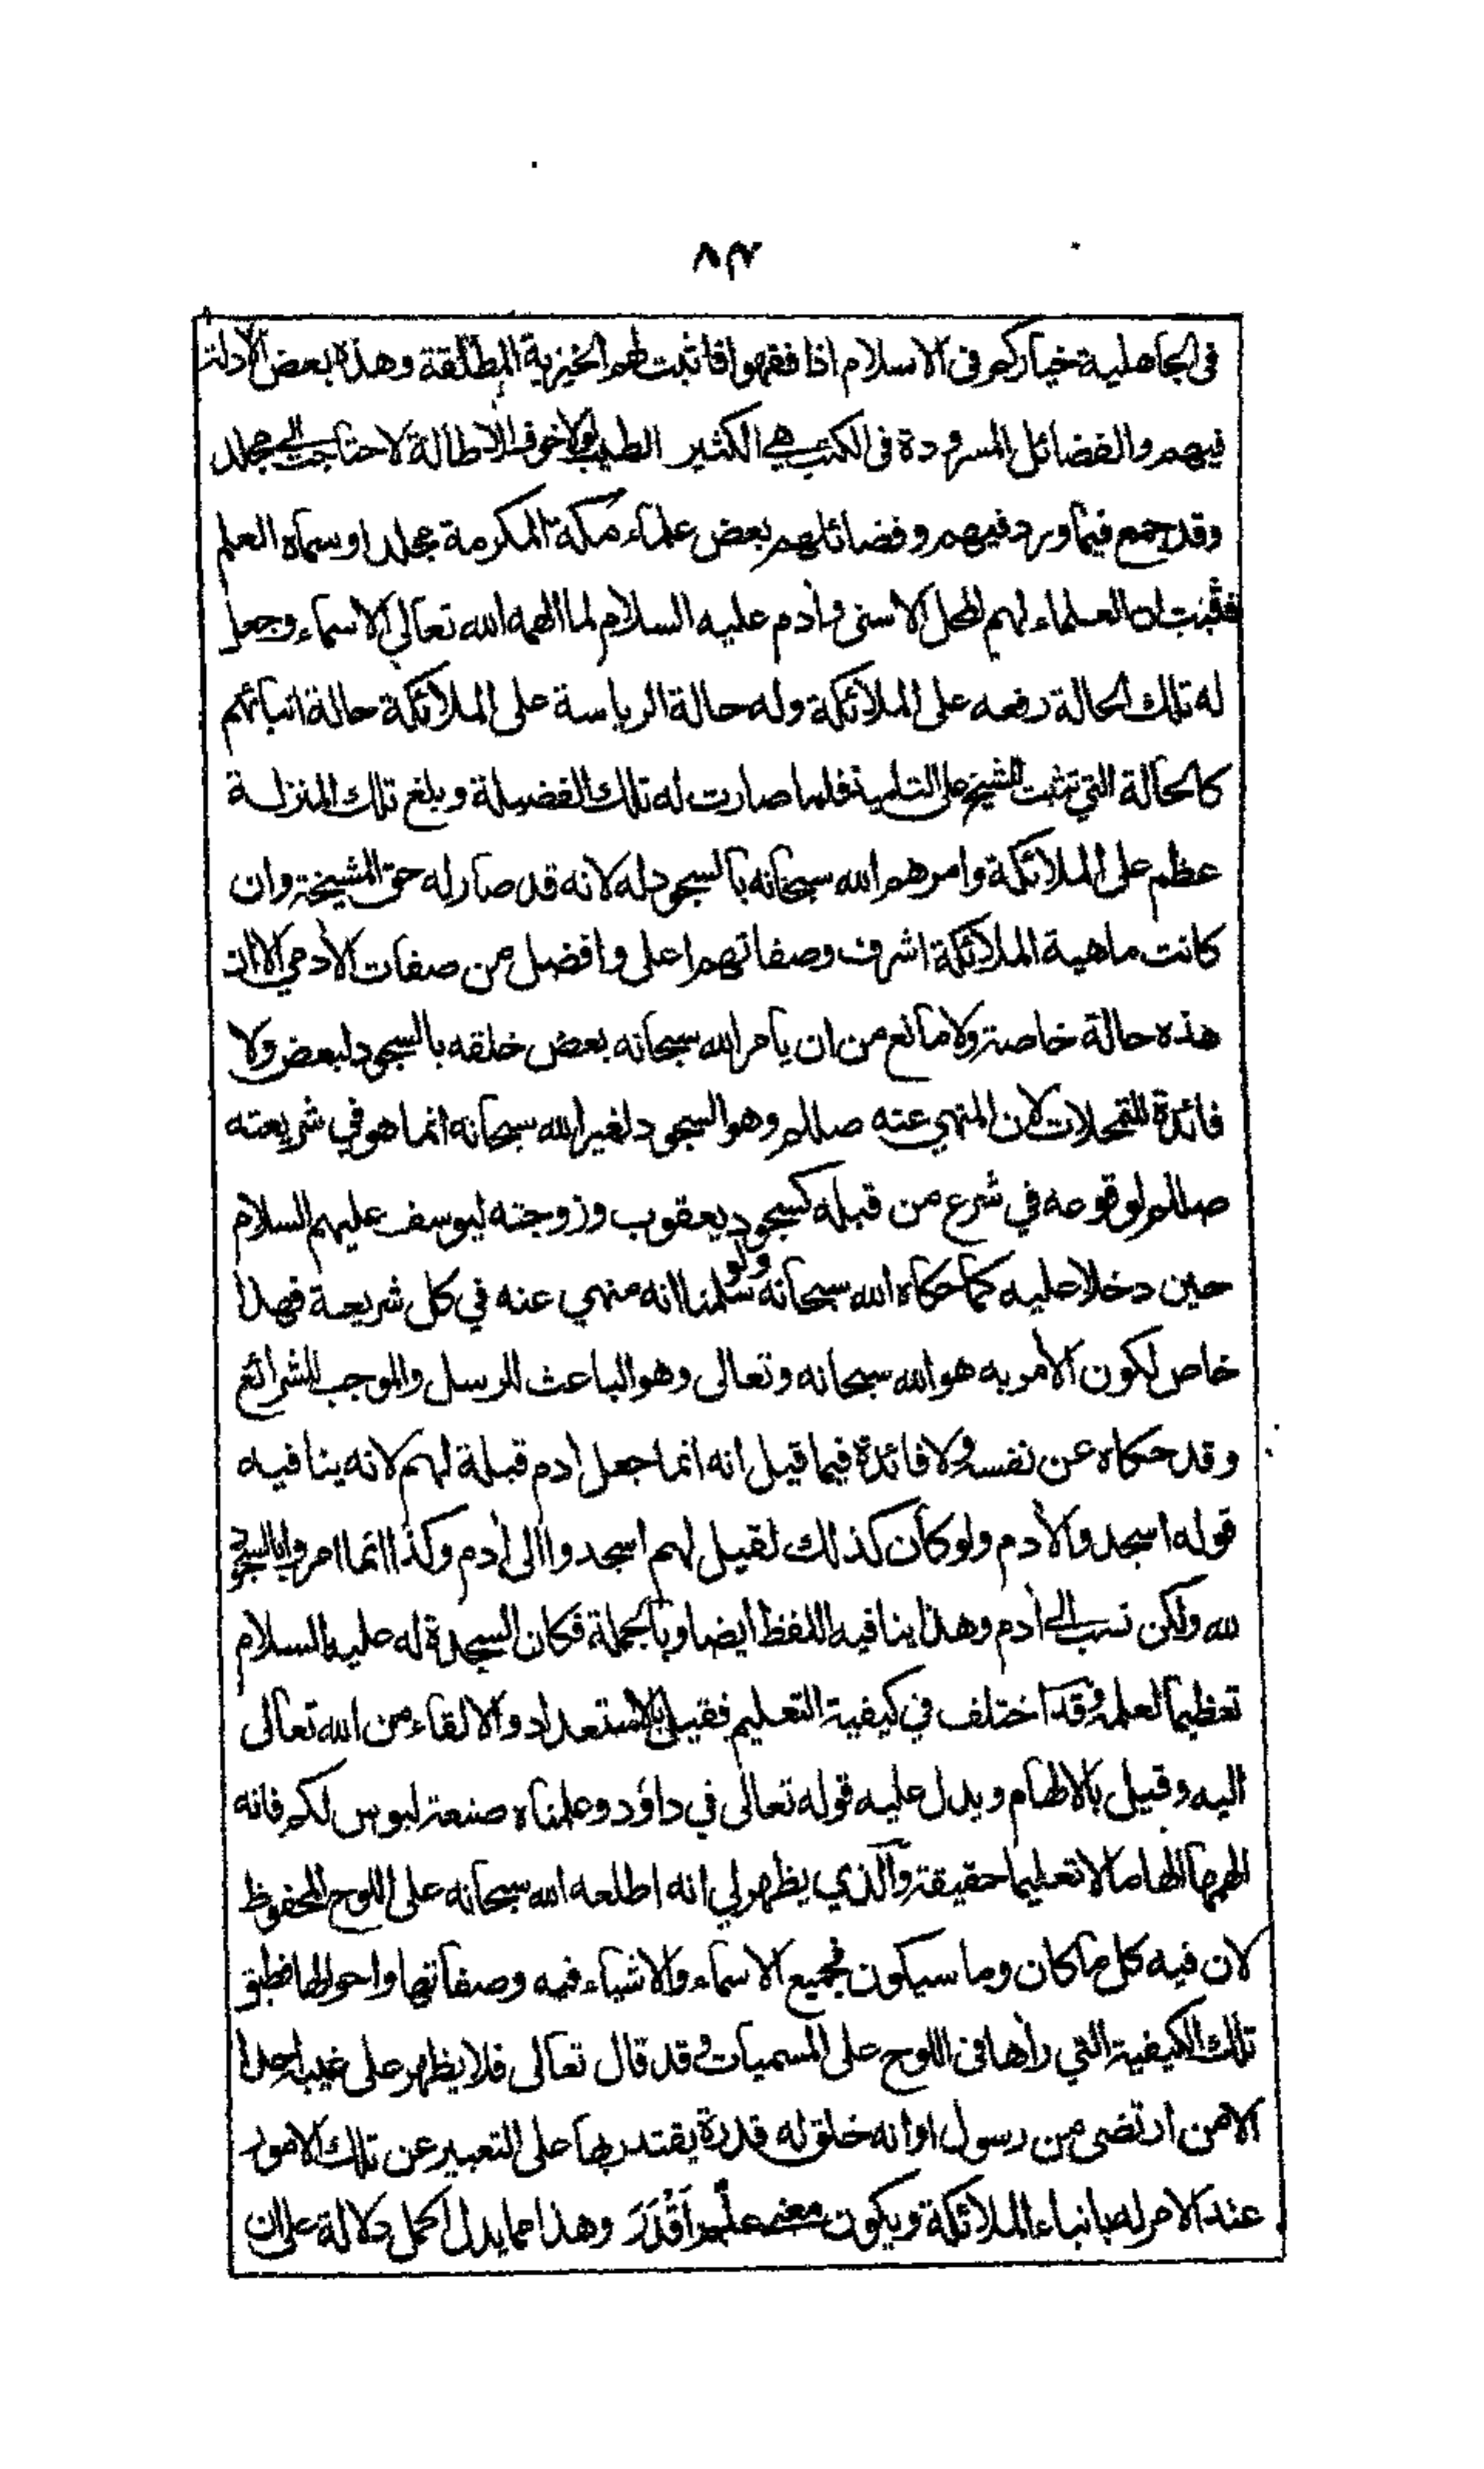 ٨٣
في الجاهلية خياركم في الاسلام اذا فقهوا فاثبت لهم الخيرية المطلقة وهذه بعض الادلة
فيهم والفضائل المسرودة في الكتب هي الكثير الطيب ولولا خوف الاطالة لاحتاجت الى مجلد
وقد جمع فيما ورد فيهم وفضائلهم بعض علماء مكة المكرمة مجلدا وسماه العلم
فثبت ان العلماء لهم المحل الاسنى وأدم عليه السلام لما الهمه الله تعالى الاسماء وجعل
له تلك الحالة رفعه على الملائكة وله حالة الرياسة على الملائكة حالة انبائهم
كالحالة التي تثبت للشيخ على التلميذ فلما صارت له تلك الفضيلة وبلغ تلك المنزلة
عظم على الملائكة وامرهم الله سبحانه بالسجود له لانه قد صار له حق المشيخة وان
كانت ماهية الملائكة اشرف وصفاتهم اعلى وافضل من صفات الأدمي الا ان
هذه حالة خاصة ولا مانع من ان يأمر الله سبحانه بعض خلقه بالسجود لبعض ولا
فائدة للتمحلات لان المنهي عنه صللم وهو السجود لغير الله سبحانه انما هو في شريعته
صللم لوقوعه في شرع من قبله كسجود يعقوب وزوجته ليوسف عليهم السلام
حين دخلا عليه كما حكاه الله سبحانه ولو سلمنا انه منهي عنه في كل شريعة فهذا
خاص لكون الأمر به هو الله سبحانه وتعالى وهو الباعث للرسل والموجب للشرائع
وقد حكاه عن نفسه ولا فائدة فيما قيل انه انما جعل ادم قبلة لهم لانه ينافيه
قوله اسجدوا لأدم ولو كان كذلك لقيل لهم اسجدوا الى أدم وكذا انما امروا بالسجود
لله ولكن نسب الى أدم وهذا ينافيه اللفظ ايضا وبالجملة فكان السجدة له عليه السلام
تعظيما لعلمه وقد اختلف في كيفية التعليم فقيل بالاستعداد والالقاء من الله تعالى
اليه وقيل بالالهام ويدل عليه قوله تعالى في داؤد وعلمناه صنعة لبوس لكم فانه
الهمها الهاما لا تعليما حقيقة والذي يظهر لي انه اطلعه الله سبحانه على اللوح المحفوظ
لان فيه كل ما كان وما سيكون فجميع الاسماء والاشياء فيه وصفاتها واحوالها فطبق
تلك الكيفية التي رأها في اللوح على المسميات وقد قال تعالى فلا يظهر على غيبه احدا
الا من ارتضى من رسول او انه خلق له قدرة يقتدر بها على التعبير عن تلك الامور
عند الامر له بانباء الملائكة ويكون معنى علّم اَقْدَرَ وهذا مما يدل اكمل دلالة على ان